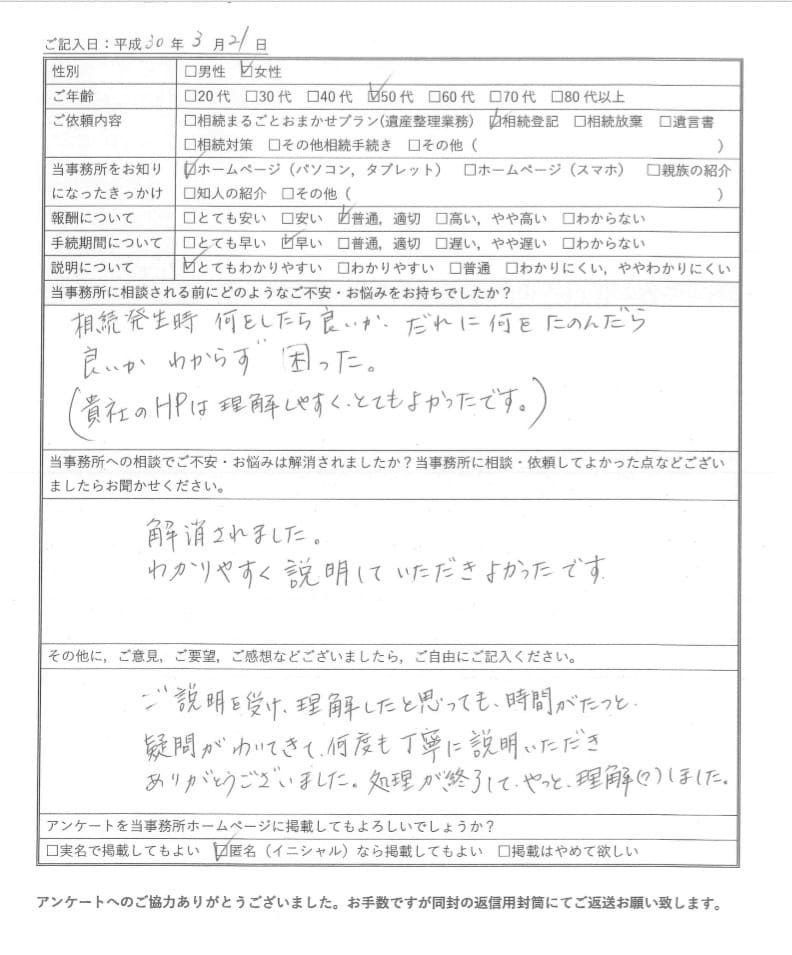 ご記入日：平成30年3月21日
性別 □男性 ☑女性
ご年齢 □20代 □30代 □40代 ☑50代 □60代 □70代 □80代以上
ご依頼内容 □相続まるごとおまかせプラン(遺産整理業務) ☑相続登記 □相続放棄 □遺言書
□相続対策 □その他相続手続き □その他（ ）
当事務所をお知り ☑ホームページ（パソコン，タブレット） □ホームページ（スマホ） □親族の紹介
になったきっかけ □知人の紹介 □その他（ ）
報酬について □とても安い □安い ☑普通，適切 □高い，やや高い □わからない
手続期間について □とても早い ☑早い □普通，適切 □遅い，やや遅い □わからない
説明について ☑とてもわかりやすい □わかりやすい □普通 □わかりにくい，ややわかりにくい
当事務所に相談される前にどのようなご不安・お悩みをお持ちでしたか？
相続発生時 何をしたら良いか、だれに何をたのんだら
良いか わからず 困った。
(貴社のHPは理解しやすく、とてもよかったです。)
当事務所への相談でご不安・お悩みは解消されましたか？当事務所に相談・依頼してよかった点などござい
ましたらお聞かせください。
解消されました。
わかりやすく説明していただきよかったです
その他に，ご意見，ご要望，ご感想などございましたら，ご自由にご記入ください。
ご説明を受け、理解したと思っても、時間がたつと、
疑問がわいてきて、何度も丁寧に説明いただき
ありがとうございました。処理が終了して、やっと、理解(?)しました。
アンケートを当事務所ホームページに掲載してもよろしいでしょうか？
□実名で掲載してもよい ☑匿名（イニシャル）なら掲載してもよい □掲載はやめて欲しい
アンケートへのご協力ありがとうございました。お手数ですが同封の返信用封筒にてご返送お願い致します。